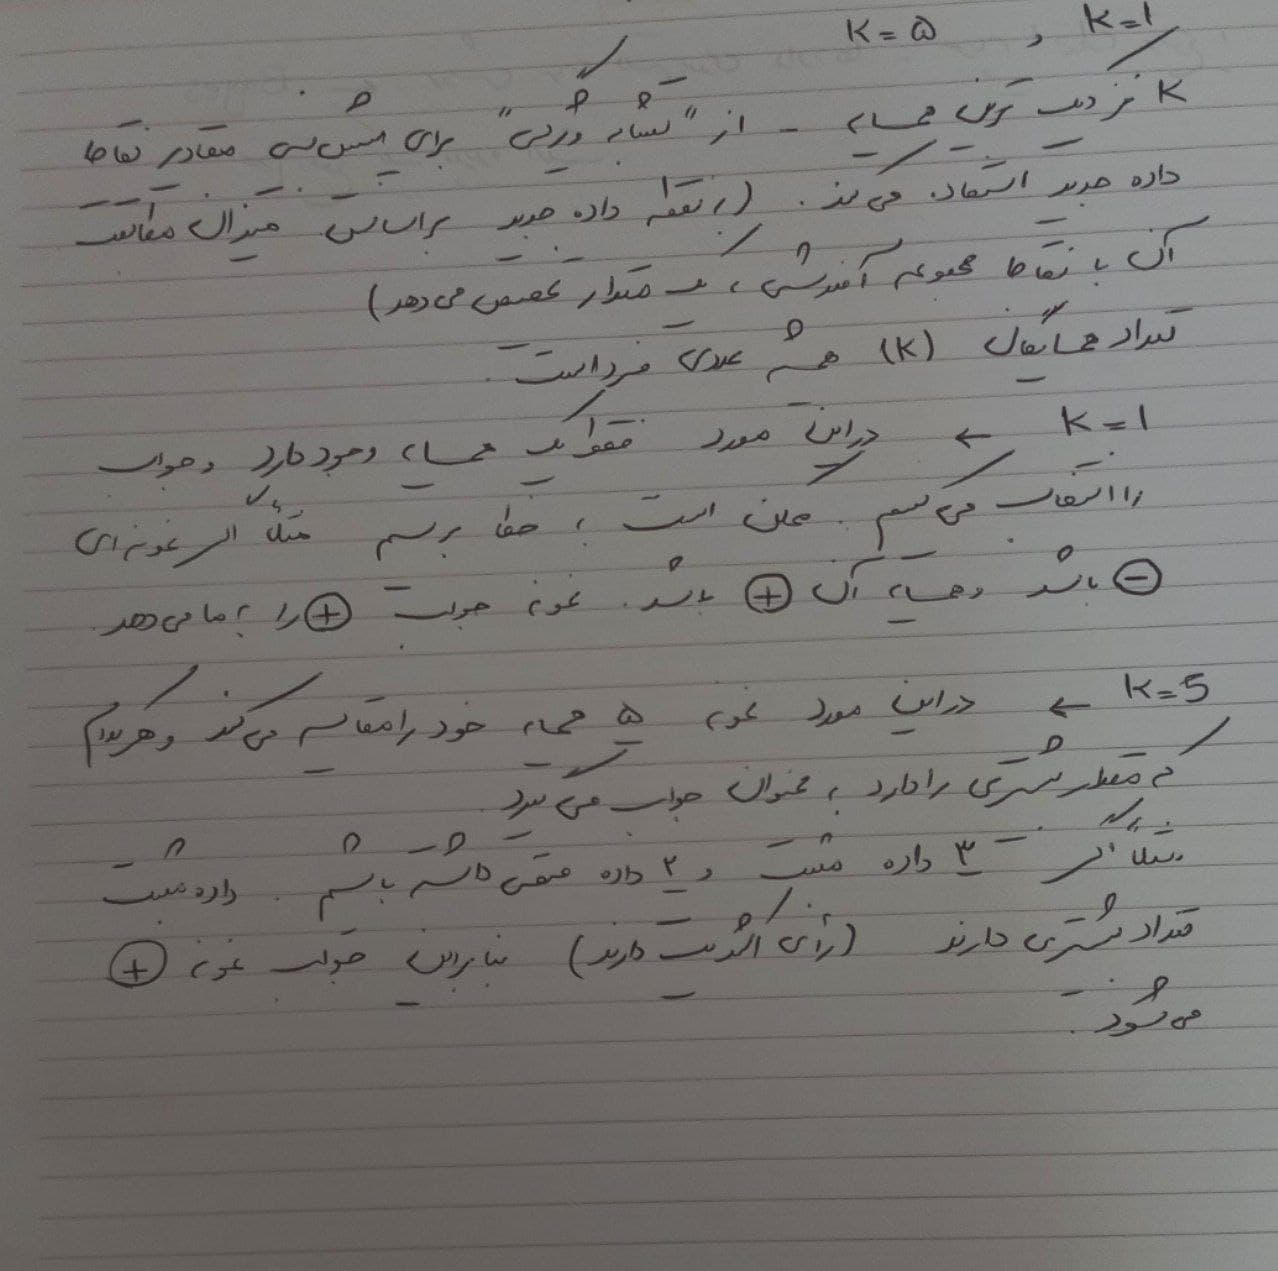 K=1 , K=۵
K نزدیک ترین همسایه - از "تشابه ویژگی" برای پیش بینی مقادیر نقاط
داده جدید استفاده می کند. (به نقطه داده جدید براساس میزان مطابقت
آن با نقاط مجموعه آموزشی، یک مقدار تخصیص می دهد)
تعداد همسایگان (K) همیشه عددی فرد است.
K=1 ← در این مورد فقط یک همسایه وجود دارد و جواب
را انتخاب می کنیم. ممکن است به خطا برسیم مثلاً اگر نمونه ای
⊖ باشد و همسایه آن ⊕ باشد. نمونه جواب ⊕ را به ما می دهد.
K=5 ← در این مورد نمونه ۵ همسایه خود را مقایسه می کند و هر کدام
که مقدار بیشتری را دارد به عنوان جواب می گیرد.
مثلاً اگر ۳ داده مثبت و ۲ داده منفی داشته باشیم. داده مثبت
تعداد بیشتری دارند (رأی اکثریت دارند) بنابراین جواب نمونه ⊕
می شود.